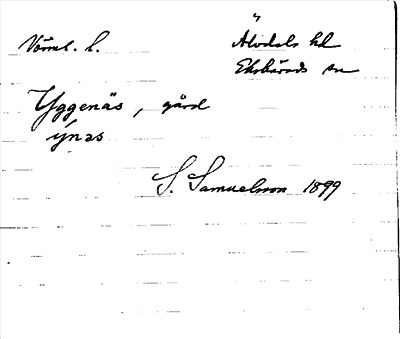 Värml. l.
Älvdals hd
Ekshärads sn
Yggenäs, gård
ýnəs
S. Samuelsson 1899